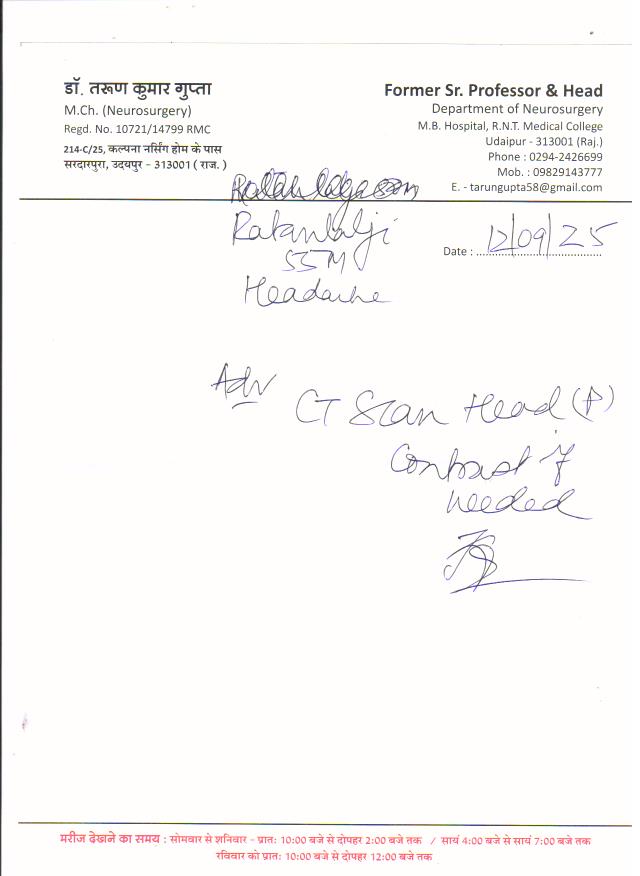 डॉ. तरूण कुमार गुप्ता
M.Ch. (Neurosurgery)
Regd. No. 10721/14799 RMC
214-C/25, कल्पना नर्सिंग होम के पास
सरदारपुरा, उदयपुर – 313001 ( राज. )
Former Sr. Professor & Head
Department of Neurosurgery
M.B. Hospital, R.N.T. Medical College
Udaipur - 313001 (Raj.)
Phone : 0294-2426699
Mob. : 09829143777
E. - tarungupta58@gmail.com
Ratanlalji
55M
Headache
Date : 12/09/25
Adv
CT Scan Head (P)
Contrast if
needed
मरीज देखने का समय : सोमवार से शनिवार – प्रातः 10:00 बजे से दोपहर 2:00 बजे तक / सायं 4:00 बजे से सायं 7:00 बजे तक
रविवार को प्रातः 10:00 बजे से दोपहर 12:00 बजे तक